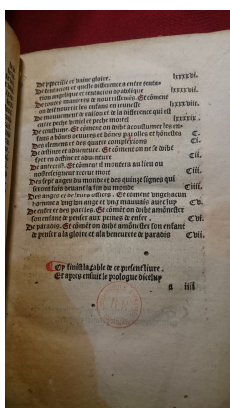 De ypocrisie et vaine gloire. lxxxvi.
De tentacion et quelle difference a entre tentacion angelique et tentacion dyabolique lxxxvii.
De toutes manieres de nourrissemēs. Et cōment on doit nourrir les enfans en ieunesse lxxxviii.
Du mouuement de raison et de la difference qui est entre peche veniel et peche mortel lxxxix.
De coustume. Et cōment on doibt acoustumer les enfans a bōnes oeuures et bōnes parolles et hōnestes C.
Des elemens et des quatre complexions Ci.
De destinee et aduenture. Et cōment on ne se doibt fyer en destinee et aduenture Cii.
De antecrist. Et cōment il montera au lieu ou nostre seigneur receut mort Ciii.
Des sept aages du monde et des quinze signes qui seront faitz deuant la fin du monde Ciiii.
Des anges et de leurs offices. Et cōment vng chacun homme a vng bon ange et vng mauuais auec luy Cv.
De enfer et des parties. Et cōment on doibt amōnester son enfant de penser aux peines de enfer. Cvi.
De paradis. Et cōmēt on doit amōnester son enfant de penser a la gloire et a la beneurete de paradis Cvii.
Cy finist la table de ce present liure.
Et apres ensuit le prologue diceluy
a iiii